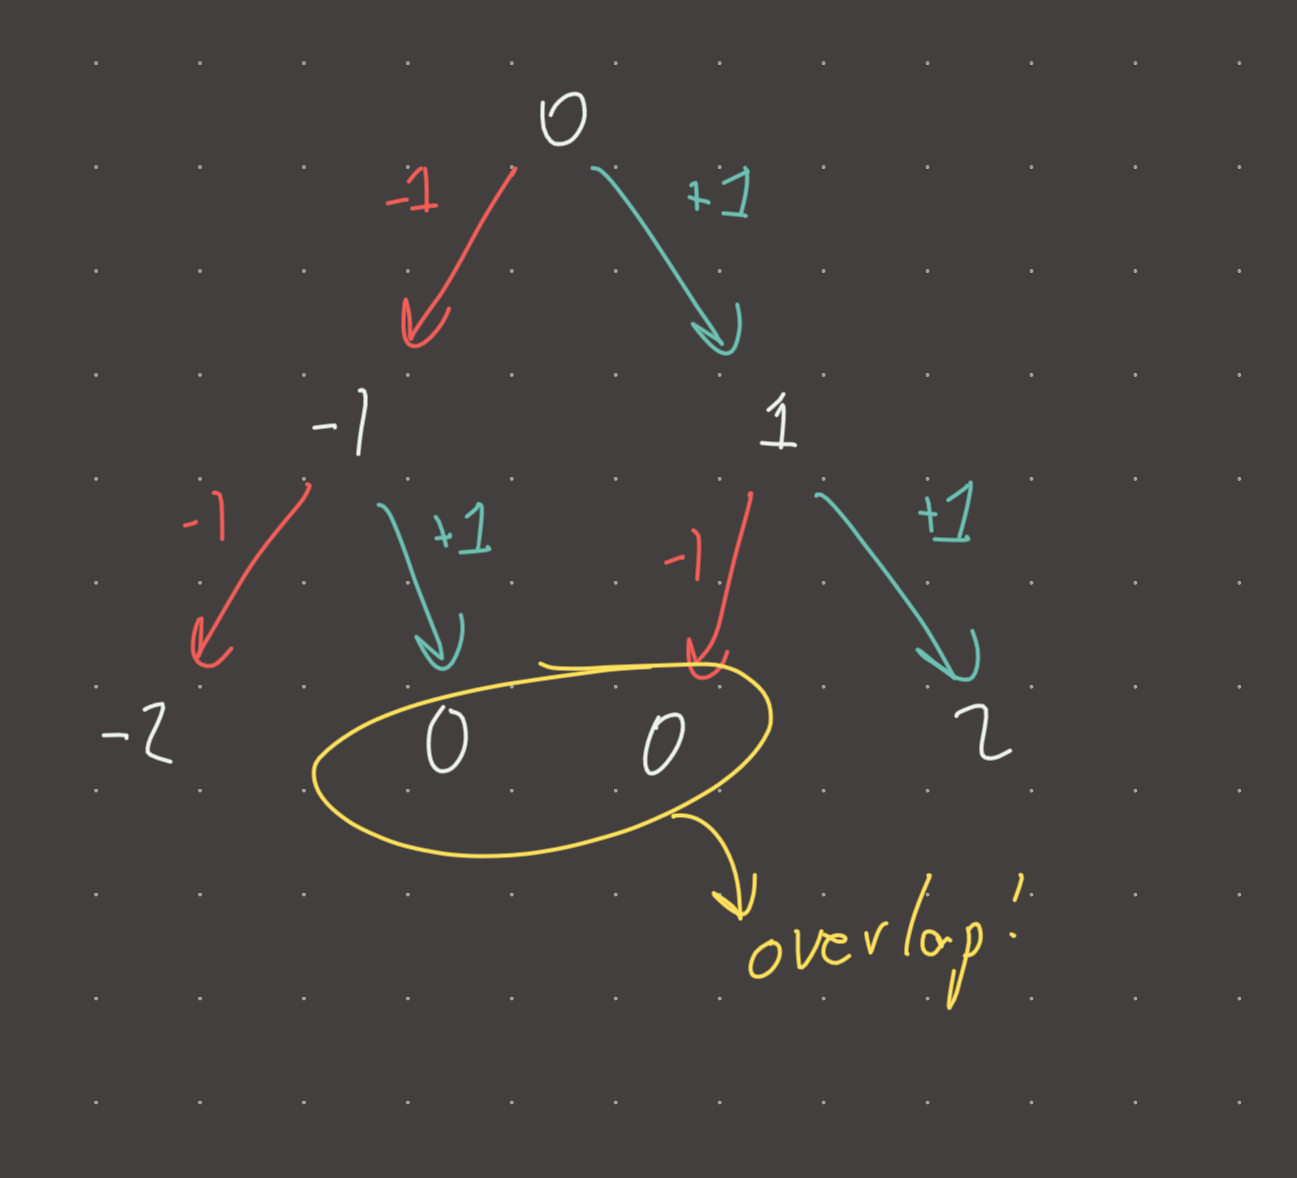 0
-1 +1
-1 1
-1 +1 -1 +1
-2 0 0 2
overlap!